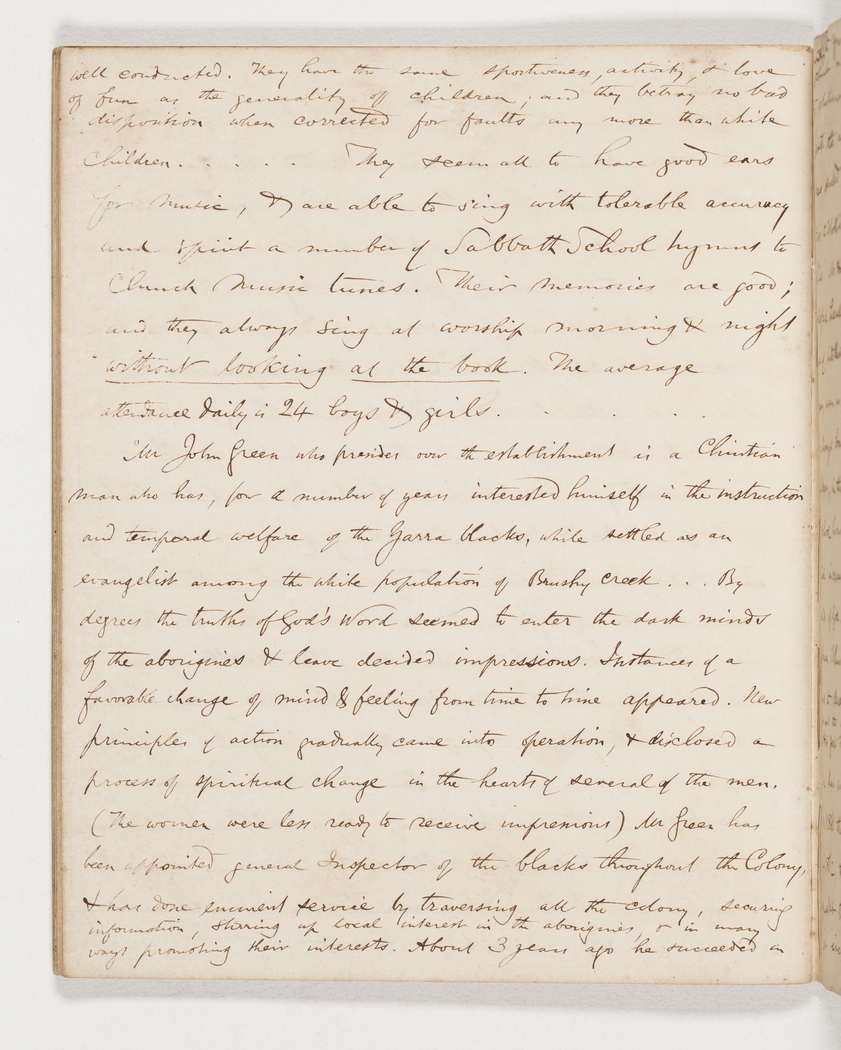 well conducted. They have the same sportiveness, activity, & love
of fun as the generality of children; and they betray no bad
disposition when corrected for faults any more than white
Children. . . . . They seem all to have good ears
for music, & are able to sing with tolerable accuracy
and spirit a number of Sabbath School hymns to
Church Music tunes. Their memories are good;
and they always sing at worship morning & night
without looking at the book. The average
attendance daily is 24 boys & girls. . . . . .
"Mr John Green who presides over the establishment is a Christian
man who has, for a number of years interested himself in the instruction
and temporal welfare of the Yarra blacks, while settled as an
evangelist among the white population of Brushy creek . . . By
degrees the truths of God's Word seemed to enter the dark minds
of the aborigines & leave decided impressions. Instances of a
favorable change of mind & feeling from time to time appeared. New
principles of action gradually came into operation, & disclosed a
process of spiritual change in the hearts of several of the men.
(The women were less ready to receive impressions) Mr Green has
been appointed general Inspector of the blacks throughout the Colony,
& has done eminent service by traversing all the colony, securing
information, stirring up local interest in the aborigines, & in many
ways promoting their interests. About 3 years ago he succeeded in